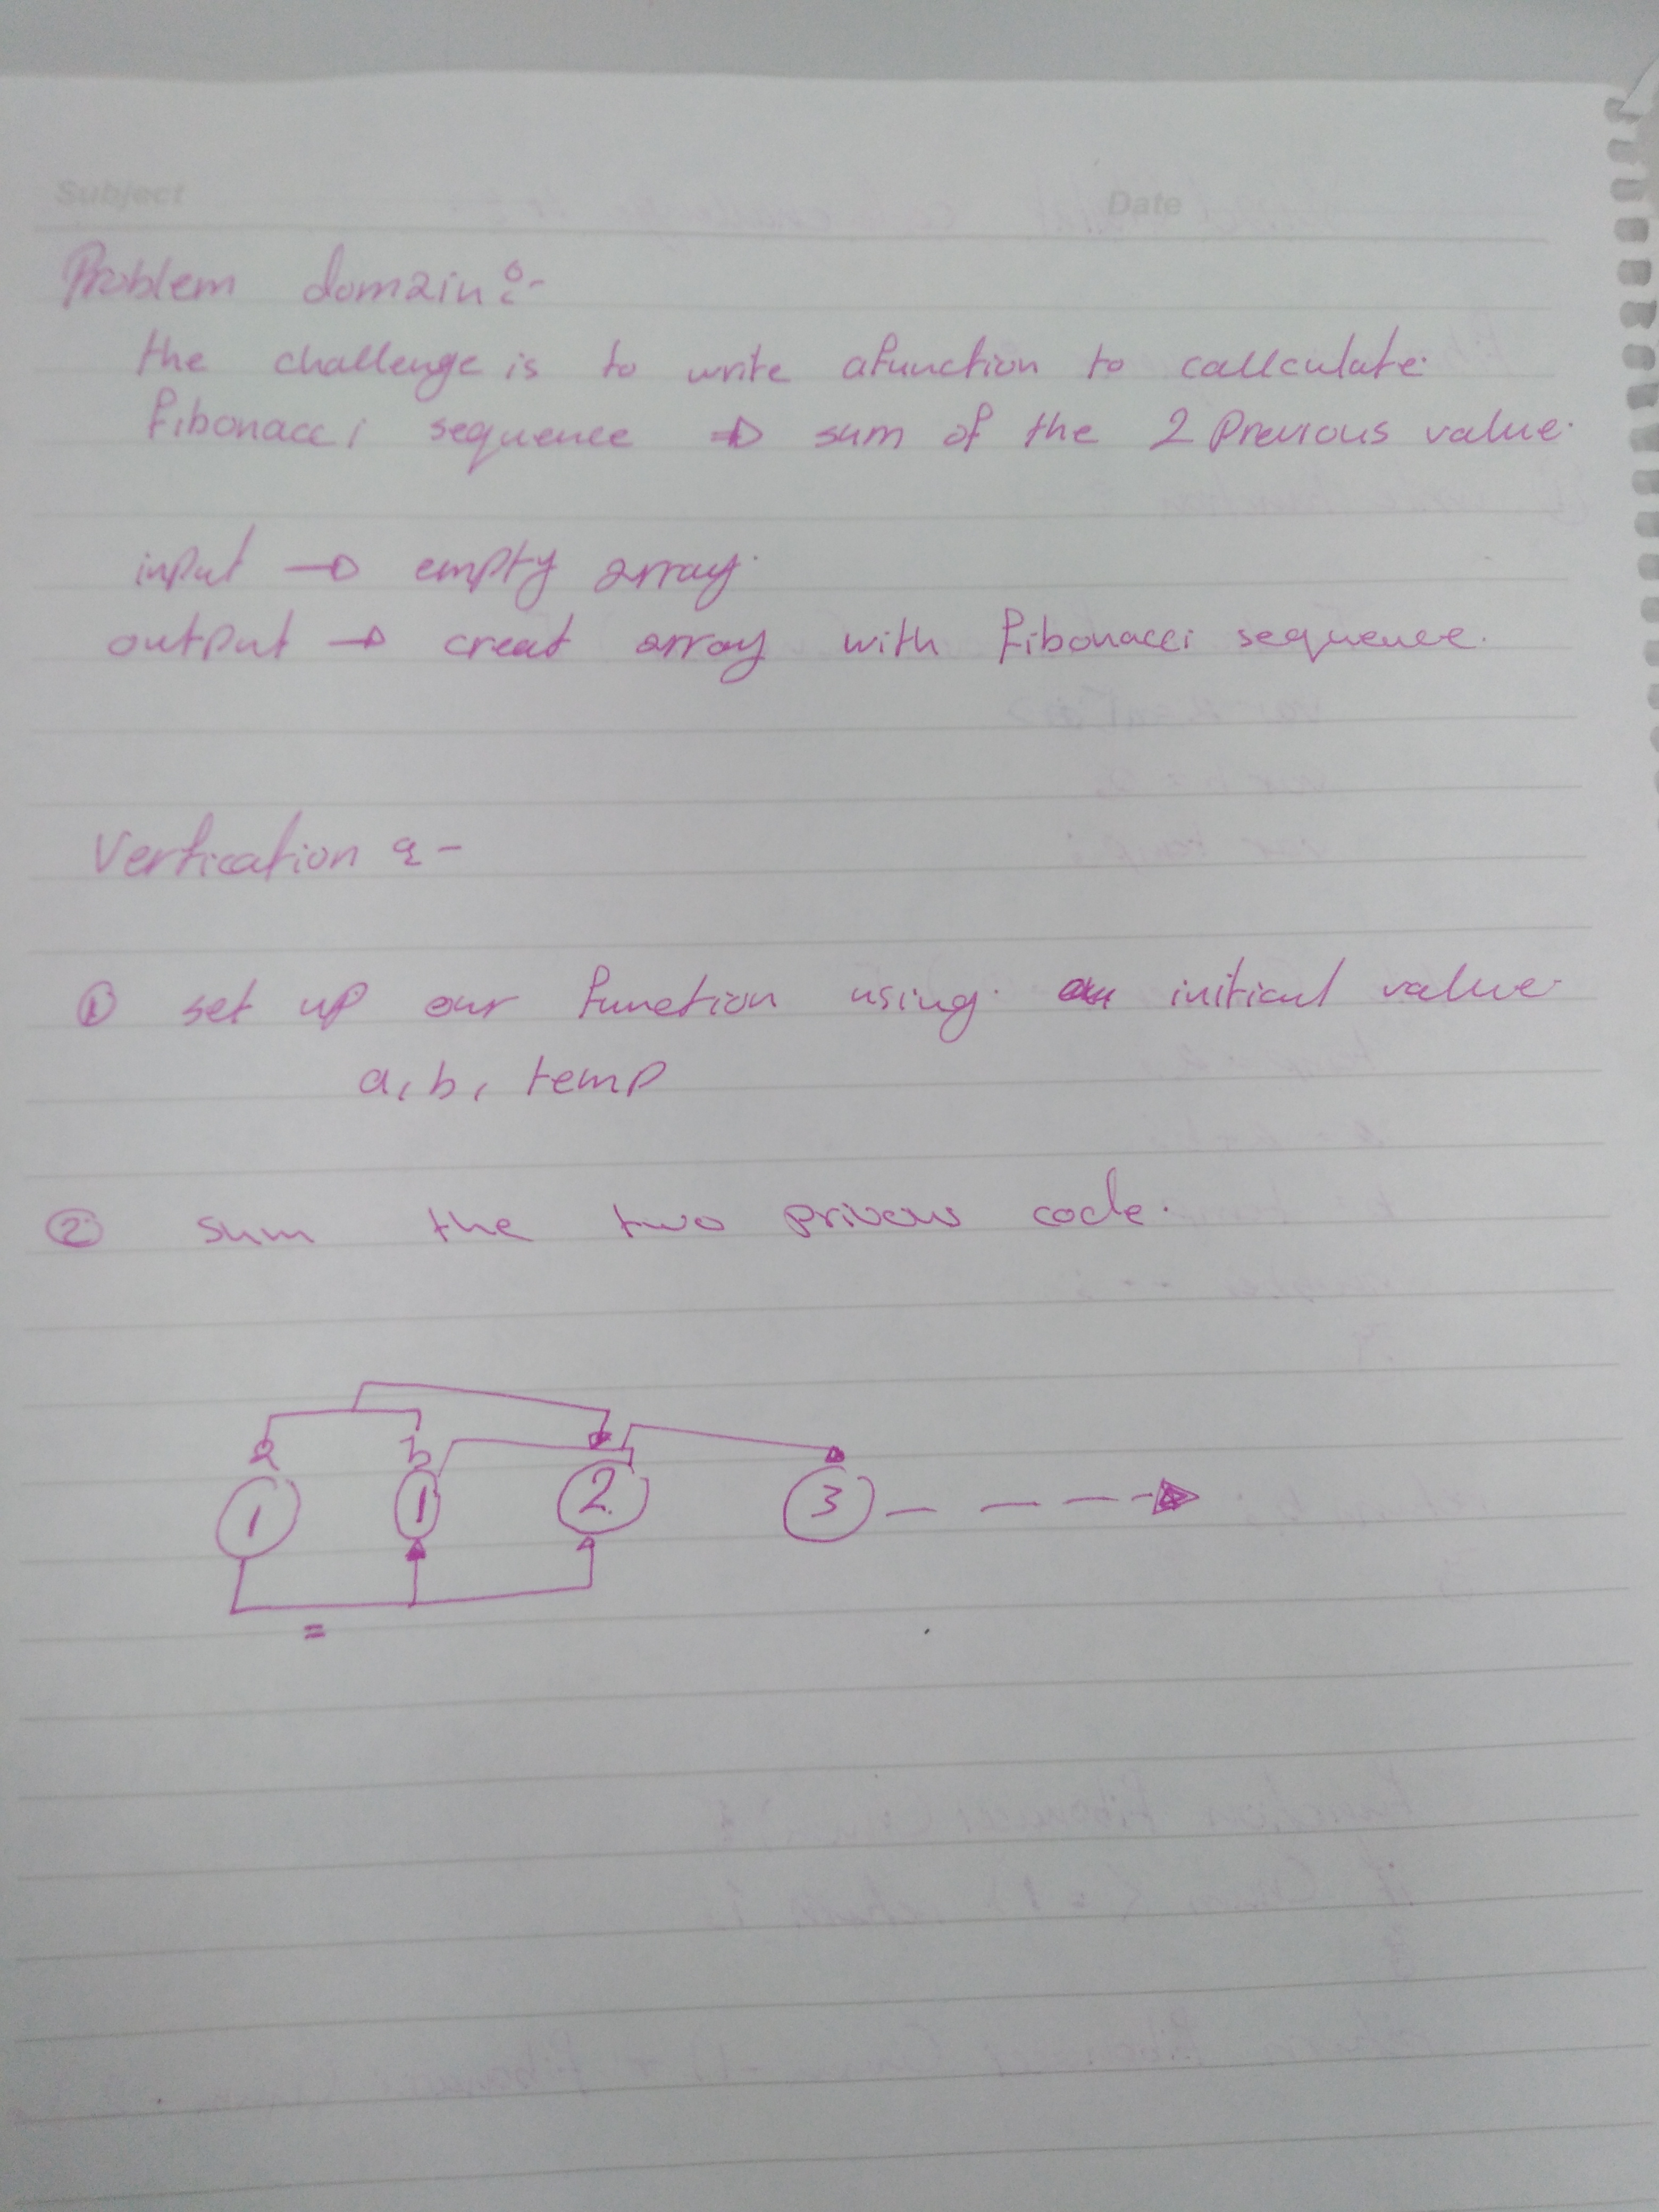 Subject Date
Problem domain :-
the challenge is to write afunction to callculate.
fibonacci sequence ⇒ sum of the 2 previous value.
input → empty array.
output → creat array with fibonacci sequence.
Vertication :-
① set up our function using initial value.
a, b, temp
② sum the two privous code.
a b
1 1 2 3
=